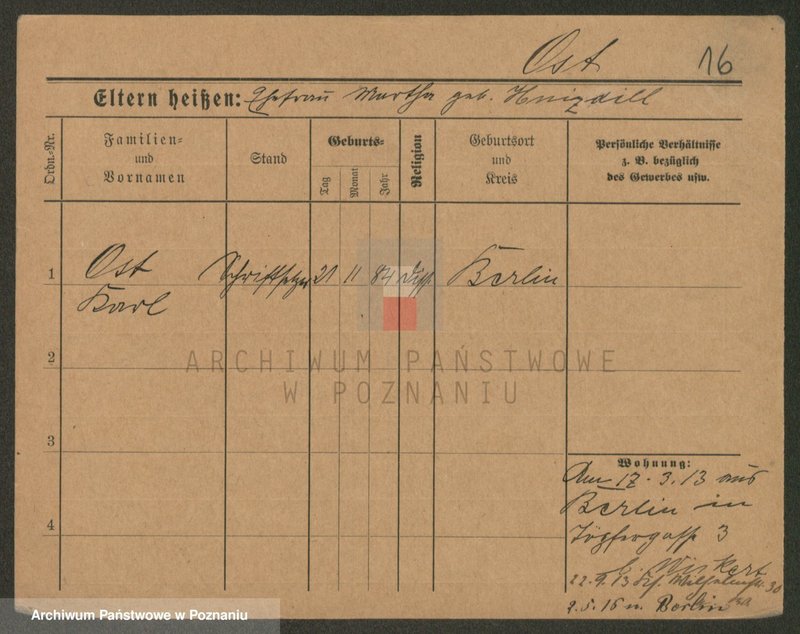 Ost 16
Eltern heißen: Ehefrau Martha geb. Hnizdill
Ordn.-Nr.
Familien-
und
Vornamen
Stand
Geburts-
Tag
Monat
Jahr
Religion
Geburtsort
und
Kreis
Persönliche Verhältnisse
z. B. bezüglich
des Gewerbes usw.
1 Ost Schriftsetzer 21 11 84 diss. Berlin
Karl
2
ARCHIWUM PAŃSTWOWE
W POZNANIU
3
4
Wohnung:
Am 17.3.13 aus
Berlin in
Töpfergasse 3
b. Winkert
22.9.13 Wilhelmstr. 30
2.5.16 n. Berlin
Archiwum Państwowe w Poznaniu